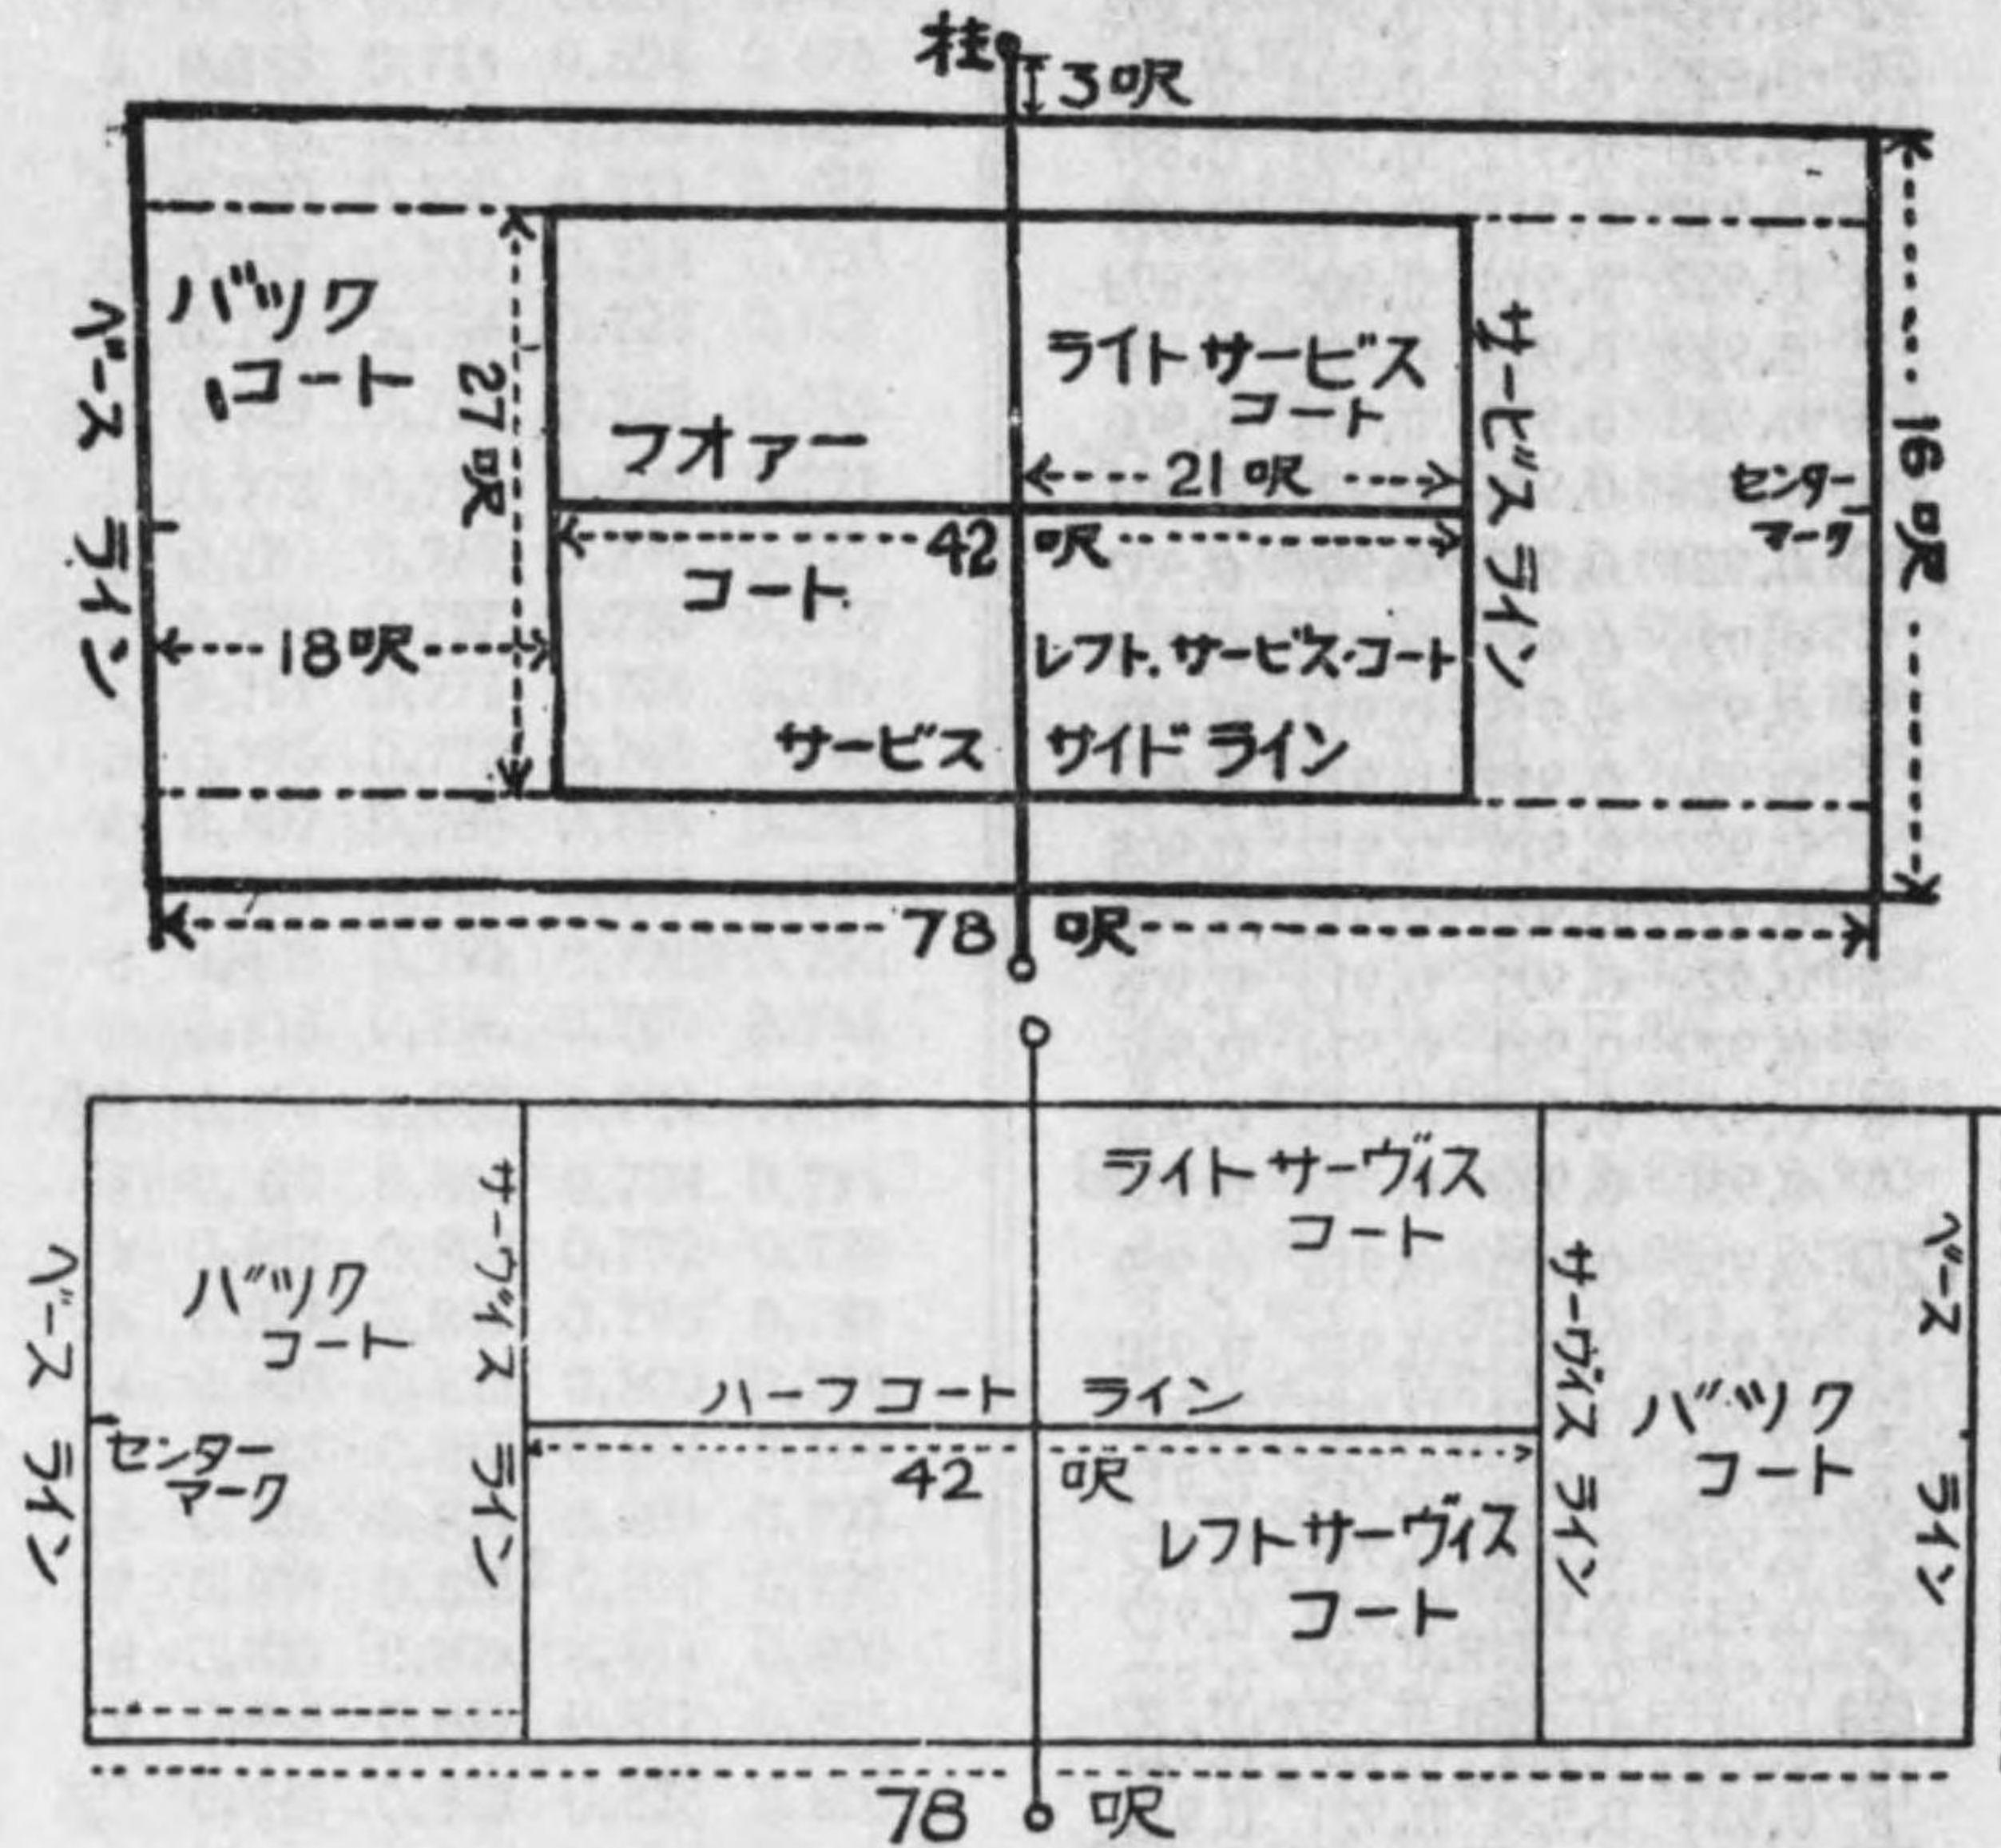 柱
3呎
バック
コート
ベース ライン
27呎
18呎
フオァー
コート
ライトサービス
コート
21呎
42 呎
レフト.サービス・コート
サービス サイドライン
サービス ライン
センター
マーク
16呎
78 呎
ベース ライン
バック
コート
センター
マーク
サーヴィス ライン
ハーフコート ライン
42 呎
ライトサーヴィス
コート
レフトサーヴィス
コート
サーヴィス ライン
バック
コート
ベース ライン
78 呎